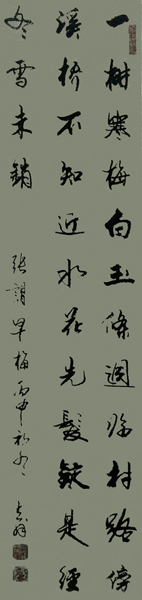 一树寒梅白玉條迴臨村路傍
溪橋不知近水花先發疑是經
冬雪未銷
張謂早梅丙申初冬